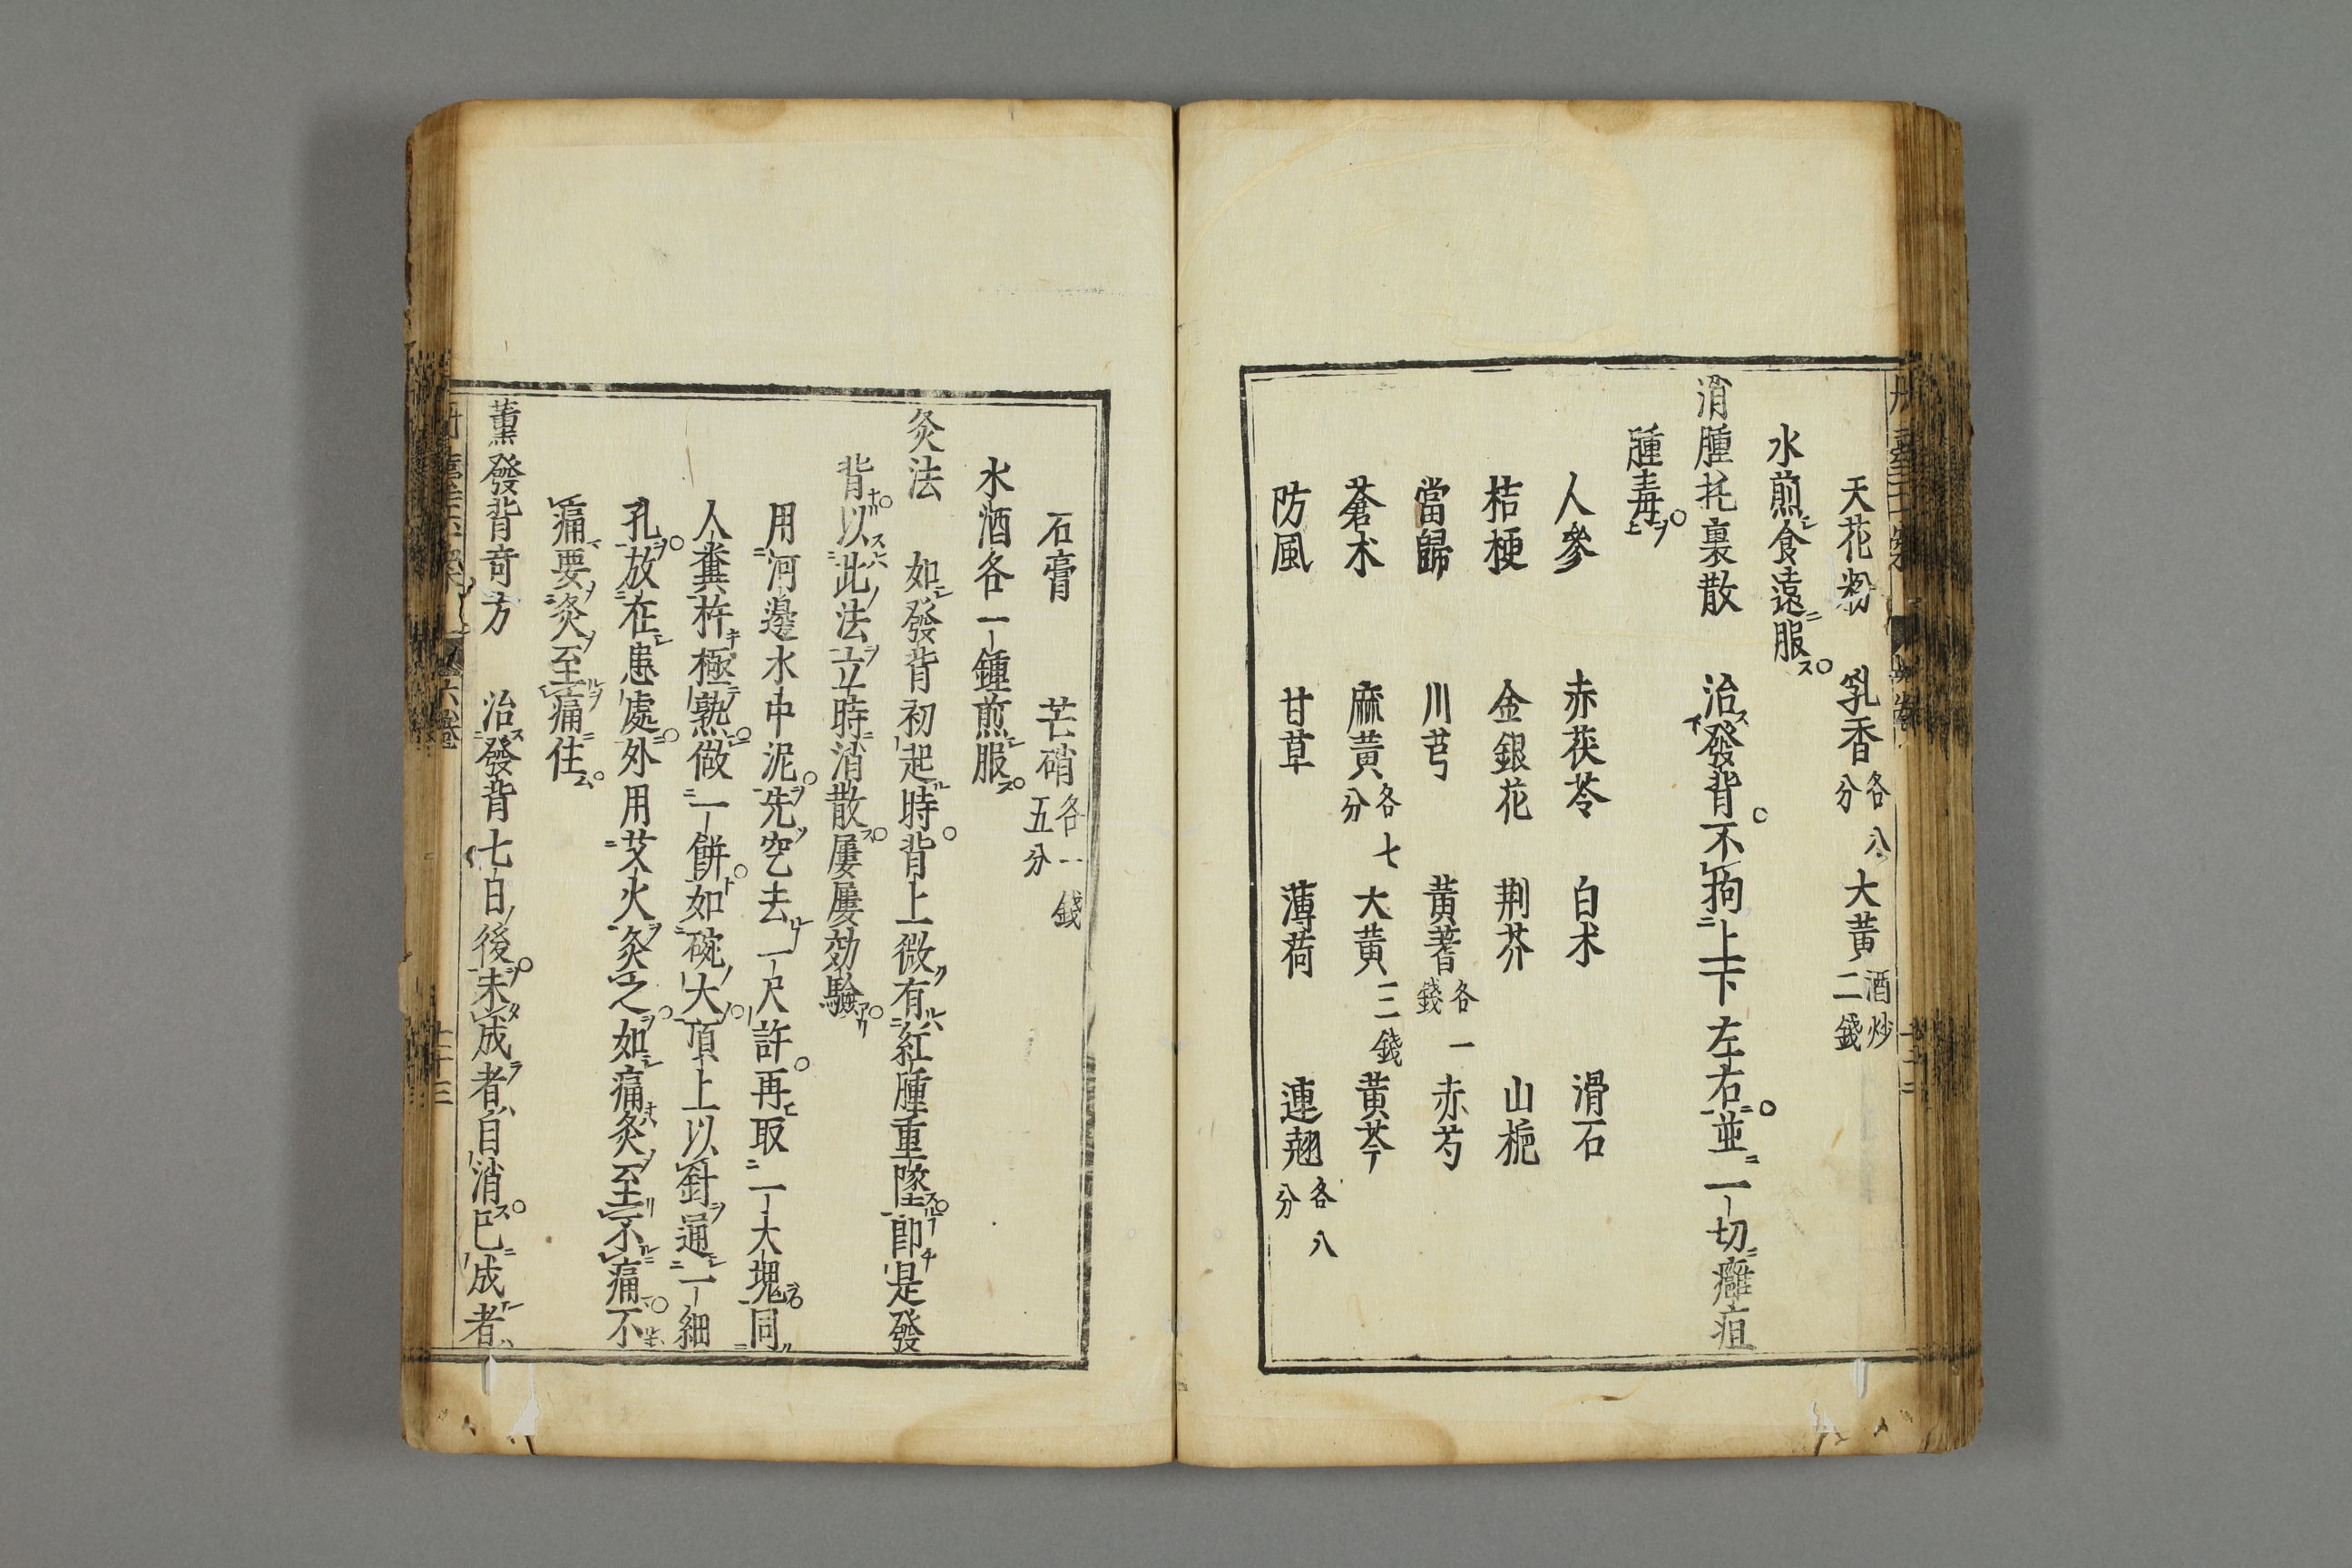 天花粉 乳香各八分 大黃酒炒二錢
水煎食遠服
消腫托裏散 治發背不拘上下左右並一切癰疽
腫毒
人參 赤茯苓 白朮 滑石
桔梗 金銀花 荆芥 山梔
當歸 川芎 黃蓍各一錢 赤芍
蒼朮 麻黃各七分 大黃三錢 黃芩
防風 甘草 薄荷 連翹各八分
石膏 芒硝各一錢五分
水酒各一鍾煎服
灸法 如發背初起時背上微有紅腫重墜卽是發
背以此法立時消散屢屢効驗
用河邊水中泥先空去一尺許再取一大塊同
人糞杵極熟做一餅如碗大頂上以針通一細
孔放在患處外用艾火灸之如痛灸至不痛不
痛要灸至痛住
薰發背奇方 治發背七日後未成者自消已成者